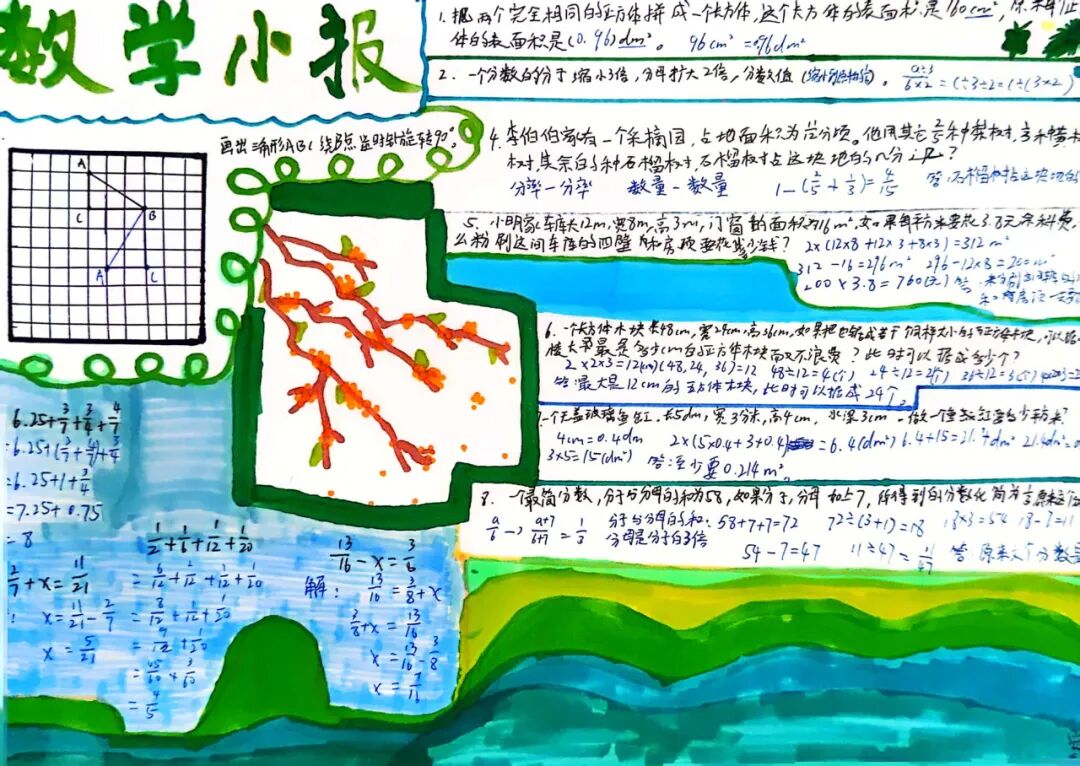 数学小报
1. 把两个完全相同的正方体拼成一个长方体,这个长方体的表面积是160cm²,原来每个正
体的表面积是(0.96)dm²。 96cm²=0.96dm²
2. 一个分数的分子缩小3倍,分母扩大2倍,分数值
画出三角形ABC绕B点逆时针旋转90°。
A
C
B
A
C
4. 李伯伯家有一个采摘园,占地面积为
树,其余的种石榴树,石榴树占这块地的几分之几?
分率-分率 数量-数量 1-(2/5+1/3)=4/15 答:石榴树占这块地的
5. 小明家车库长12m,宽8m,高3m,门窗的面积为16m²,如果每平方米要花3.8元
么粉刷这间车库的四壁和房顶要花多少钱? 2×(12×8+12×3+8×3)=312m²
312-16=296m² 296-12×8=200m²
200×3.8=760(元)
6. 一个长方体木块长48cm,宽24cm,高36cm,如果把它锯成若干个同样大小的正方体木块,可以
棱长最大是多少cm的正方体木块而又不浪费?此时可以锯成多少个?
2×2×3=12(cm)(48,24,36)=12 48÷12=4(个) 24÷12=2(个) 36÷12=3(个)
答:最大是12cm的正方体木块,此时可以锯成24个。
7. 一个无盖玻璃鱼缸,长5dm,宽3分米,高4cm,水深3cm,做一个
4cm=0.4dm 2×(5×0.4+3×0.4)=6.4(dm²) 6.4+15=21.4dm²
3×5=15(dm²) 答:至少要0.214m²。
8. 一个最简分数,分子与分母的和为58,如果分子,分母加上7,所得到的分数化简为
分子与分母的和:58+7+7=72 72÷(3+1)=18 18×3=54 18-7=11
分母是分子的3倍
54-7=47 11÷47=11/47 答:原来这个分数是
6.25+3/7+3/4+4/7
=6.25+(3/7+4/7)+3/4
=6.25+1+3/4
=7.25+0.75
=8
2/7+x=11/21
x=11/21-2/7
x=5/21
1/2+1/6+1/12+1/20
=6/12+2/12+1/12+1/20
=8/12+1/12+1/20
=9/12+1/20
=45/60+3/60
=4/5
解:
3/8+x=13/16
x=13/16-3/8
x=7/16